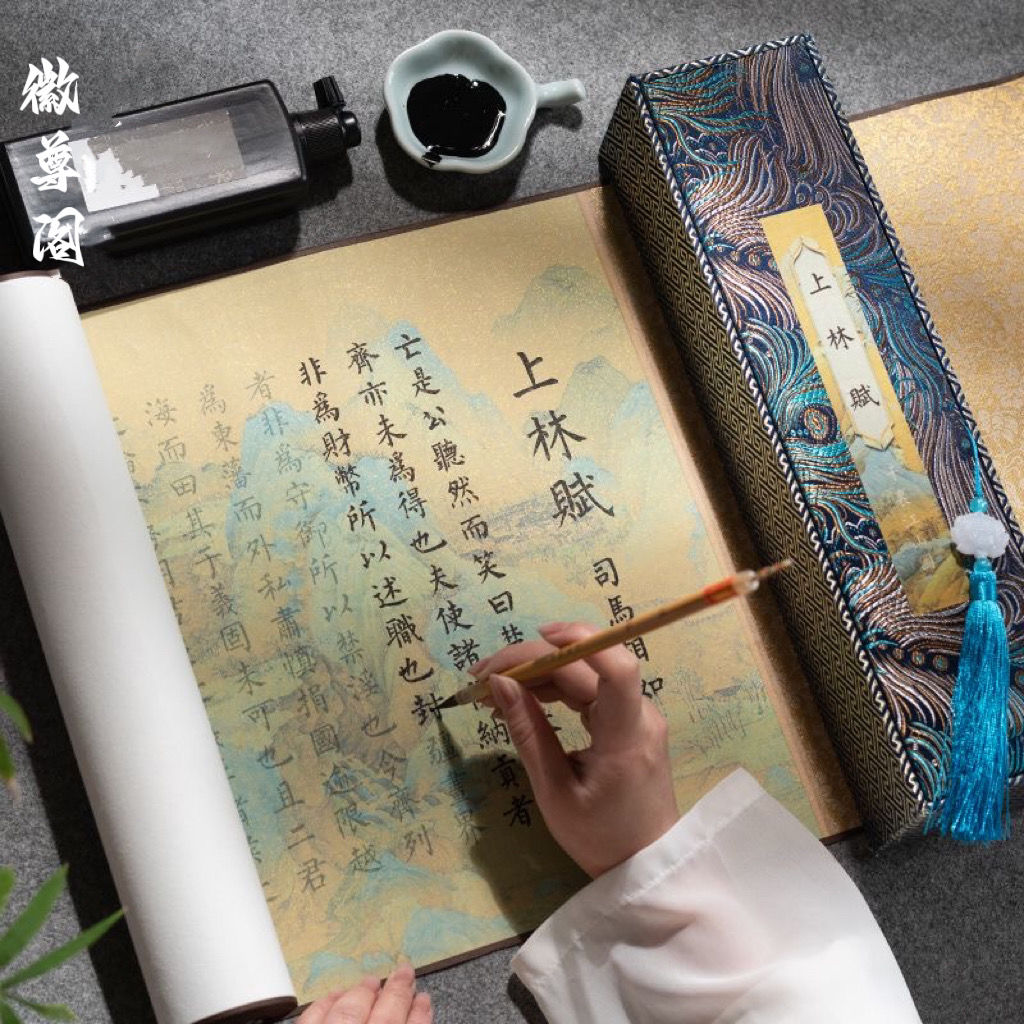 徽尊阁
上林賦
司馬如
亡是公聽然而笑曰
齊亦未為得也夫使諸納貢者
非為財幣所以述職也封疆畫界
者非為守御所以禁淫也今齊列
為東藩而外私肅慎捐國逾限越
海而田其于義固未可也且二君
上林賦